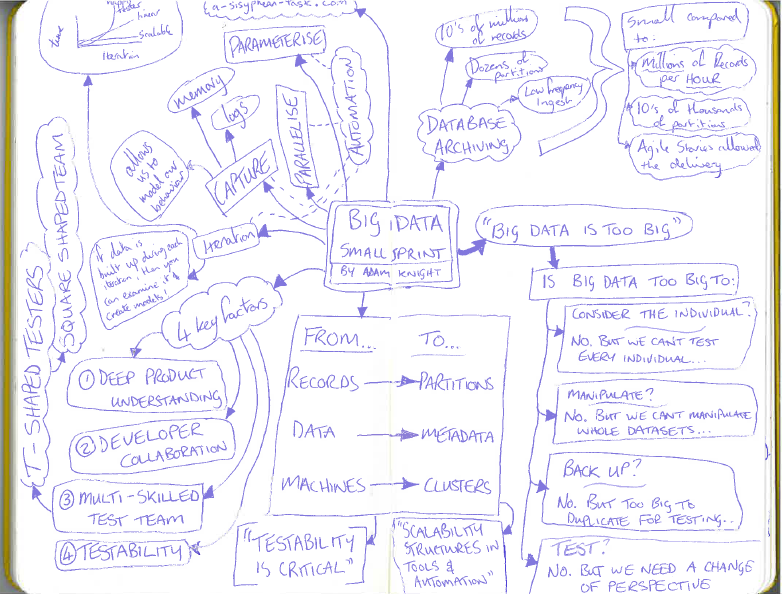 time
happy
faster
linear
Scalable
Iteration
a-sisyphean-task.com
PARAMETERISE
AUTOMATION
PARALLELISE
memory
logs
CAPTURE
allows
us to
model our
behaviour
Iteration
If data is
built up during each
iteration, then you
can examine it &
create models!
10's of millions
of records
Dozens of
partitions
Low frequency
Ingest
DATABASE
ARCHIVING
Small compared
to:
Millions of Records
per HOUR
10's of thousands
of partitions
Agile Stories allowed
the delivery
BIG iDATA
SMALL SPRINT
BY ADAM KNIGHT
"BIG DATA IS TOO BIG"
IS BIG DATA TOO BIG TO:
CONSIDER THE INDIVIDUAL?
NO. BUT WE CAN'T TEST
EVERY INDIVIDUAL...
MANIPULATE?
NO. BUT WE CAN'T MANIPULATE
WHOLE DATASETS...
BACK UP?
NO. BUT TOO BIG TO
DUPLICATE FOR TESTING...
TEST?
NO. BUT WE NEED A CHANGE
OF PERSPECTIVE
FROM... TO...
RECORDS PARTITIONS
DATA METADATA
MACHINES CLUSTERS
"TESTABILITY
IS CRITICAL"
"SCALABILITY
STRUCTURES IN
TOOLS &
AUTOMATION"
4 key factors
1 DEEP PRODUCT
UNDERSTANDING
2 DEVELOPER
COLLABORATION
3 MULTI-SKILLED
TEST TEAM
4 TESTABILITY
T-SHAPED TESTERS
SQUARE SHAPED TEAM